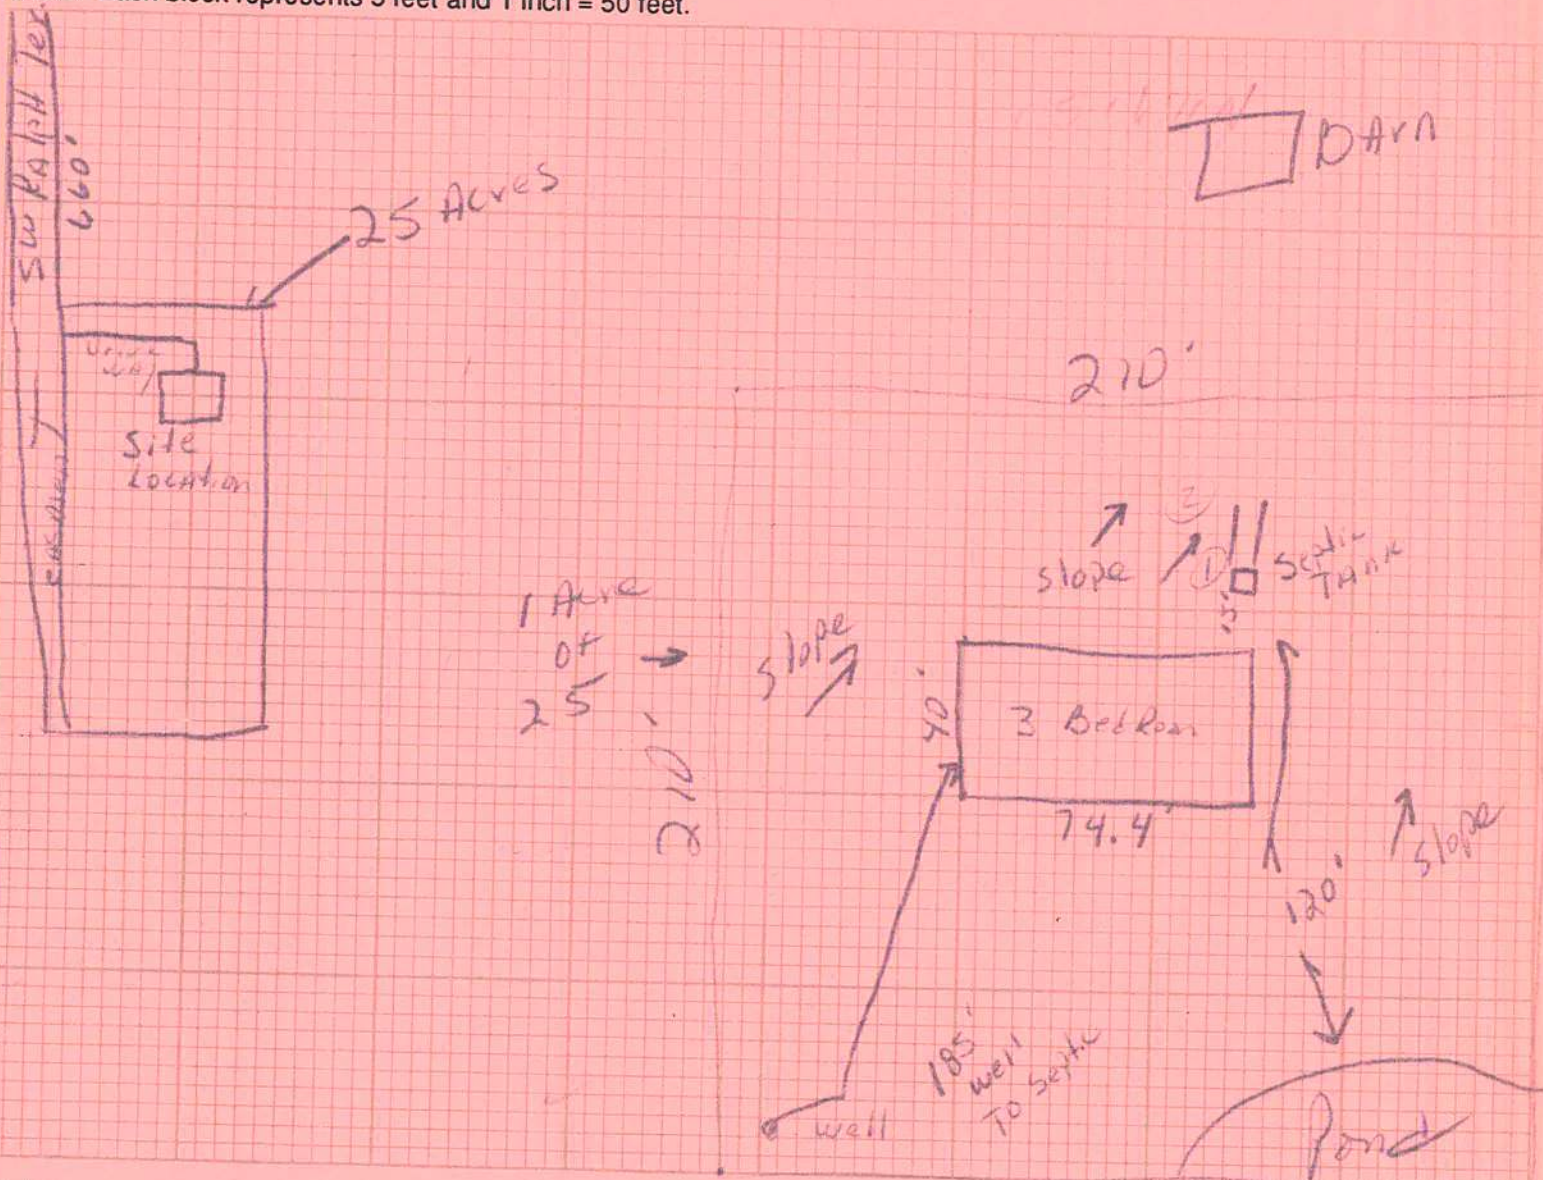 Block represents 5 feet and 1 inch = 50 feet.
SW RAlpH Ter
660'
25 Acres
BArn
210'
Site
LOCAtion
easment
slope
②
①
Septic
TAnk
1 Acre
of
25
210'
slope
40'
3 BedRom
74.4'
slope
120'
185'
well
To Septic
well
Pond